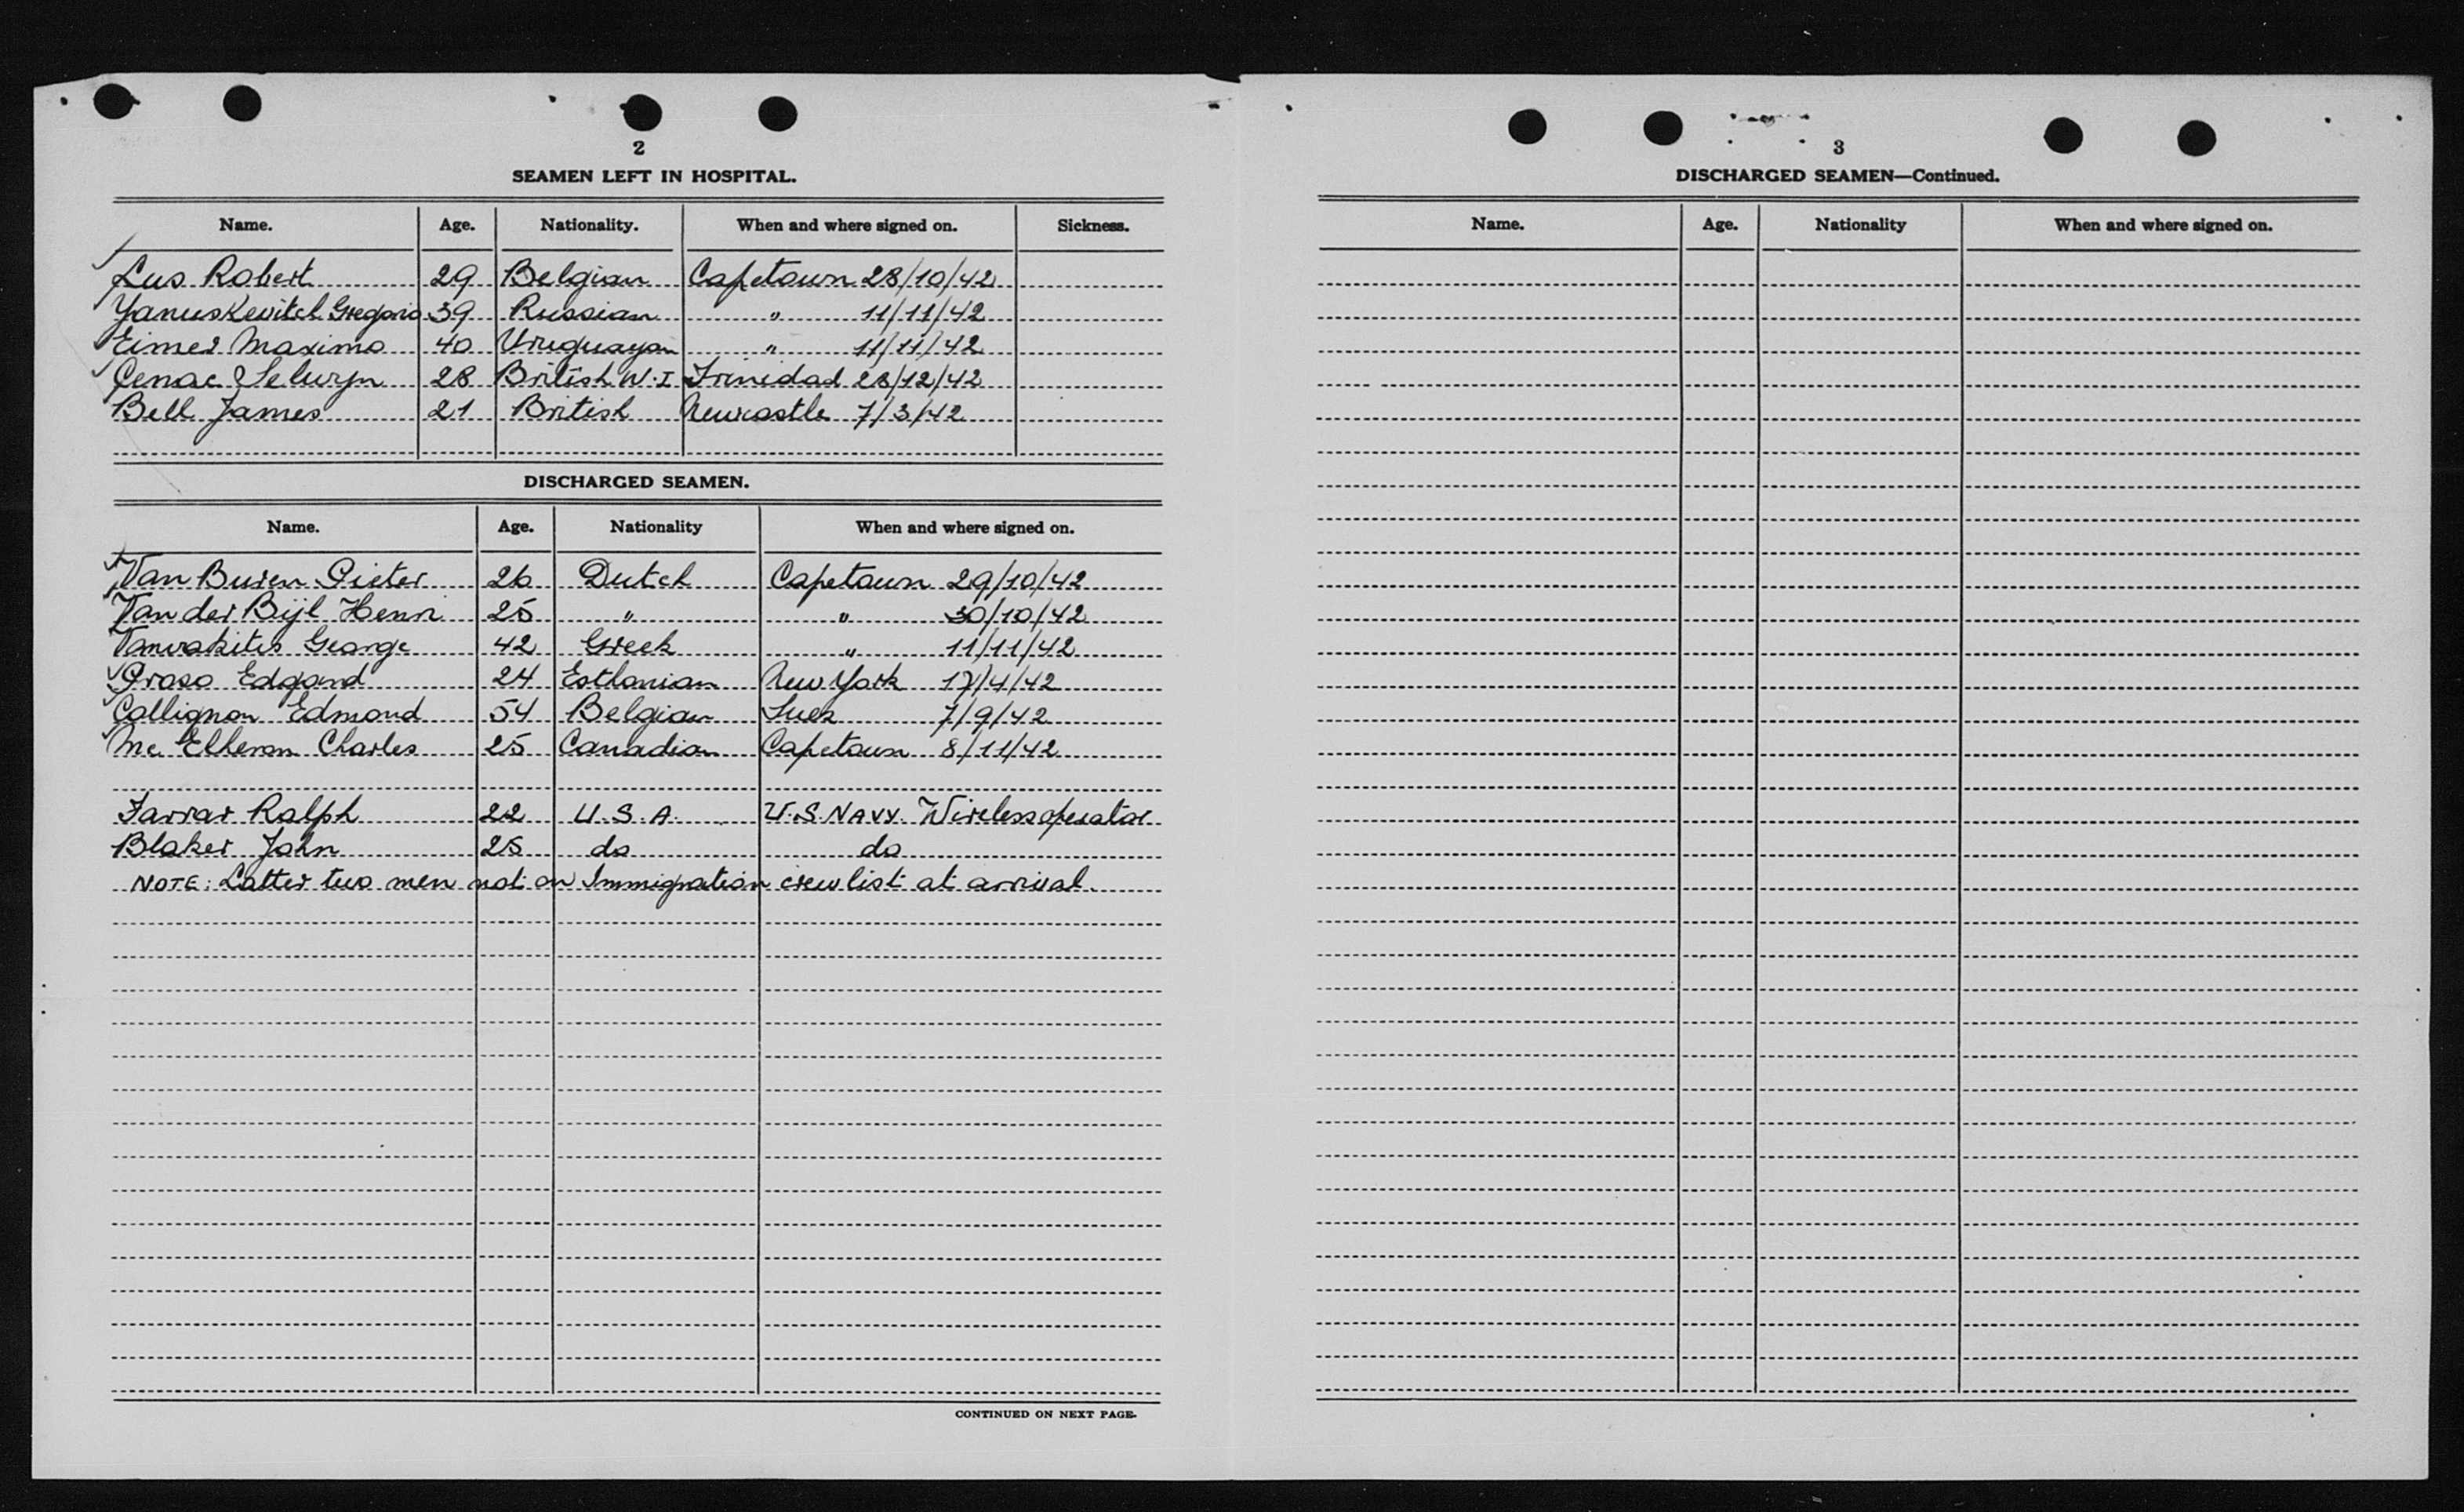 2
SEAMEN LEFT IN HOSPITAL.
Name. Age. Nationality. When and where signed on. Sickness.
Lus Robert 29 Belgian Capetown 28/10/42
Yanuskevitch Gregorio 39 Russian " 11/11/42
Eimer Maximo 40 Uruguayan " 11/11/42
Cenac Selwyn 28 British W.I Trinidad 28/12/42
Bell James 21 British Newcastle 7/3/42
DISCHARGED SEAMEN.
Name. Age. Nationality When and where signed on.
Van Buren Pieter 26 Dutch Capetown 29/10/42
Van der Bijl Henri 25 " " 30/10/42
George 42 Greek " 11/11/42
Proso Edgard 24 Esthonian New York 17/4/42
Collignon Edmond 54 Belgian Suez 7/9/42
Mc Elheron Charles 25 Canadian Capetown 8/11/42
Farrar Ralph 22 U.S.A. U.S. NAVY. Wireless operator
Blaker John 25 do do
NOTE: Latter two men not on Immigration crew list at arrival.
CONTINUED ON NEXT PAGE.
3
DISCHARGED SEAMEN—Continued.
Name. Age. Nationality When and where signed on.